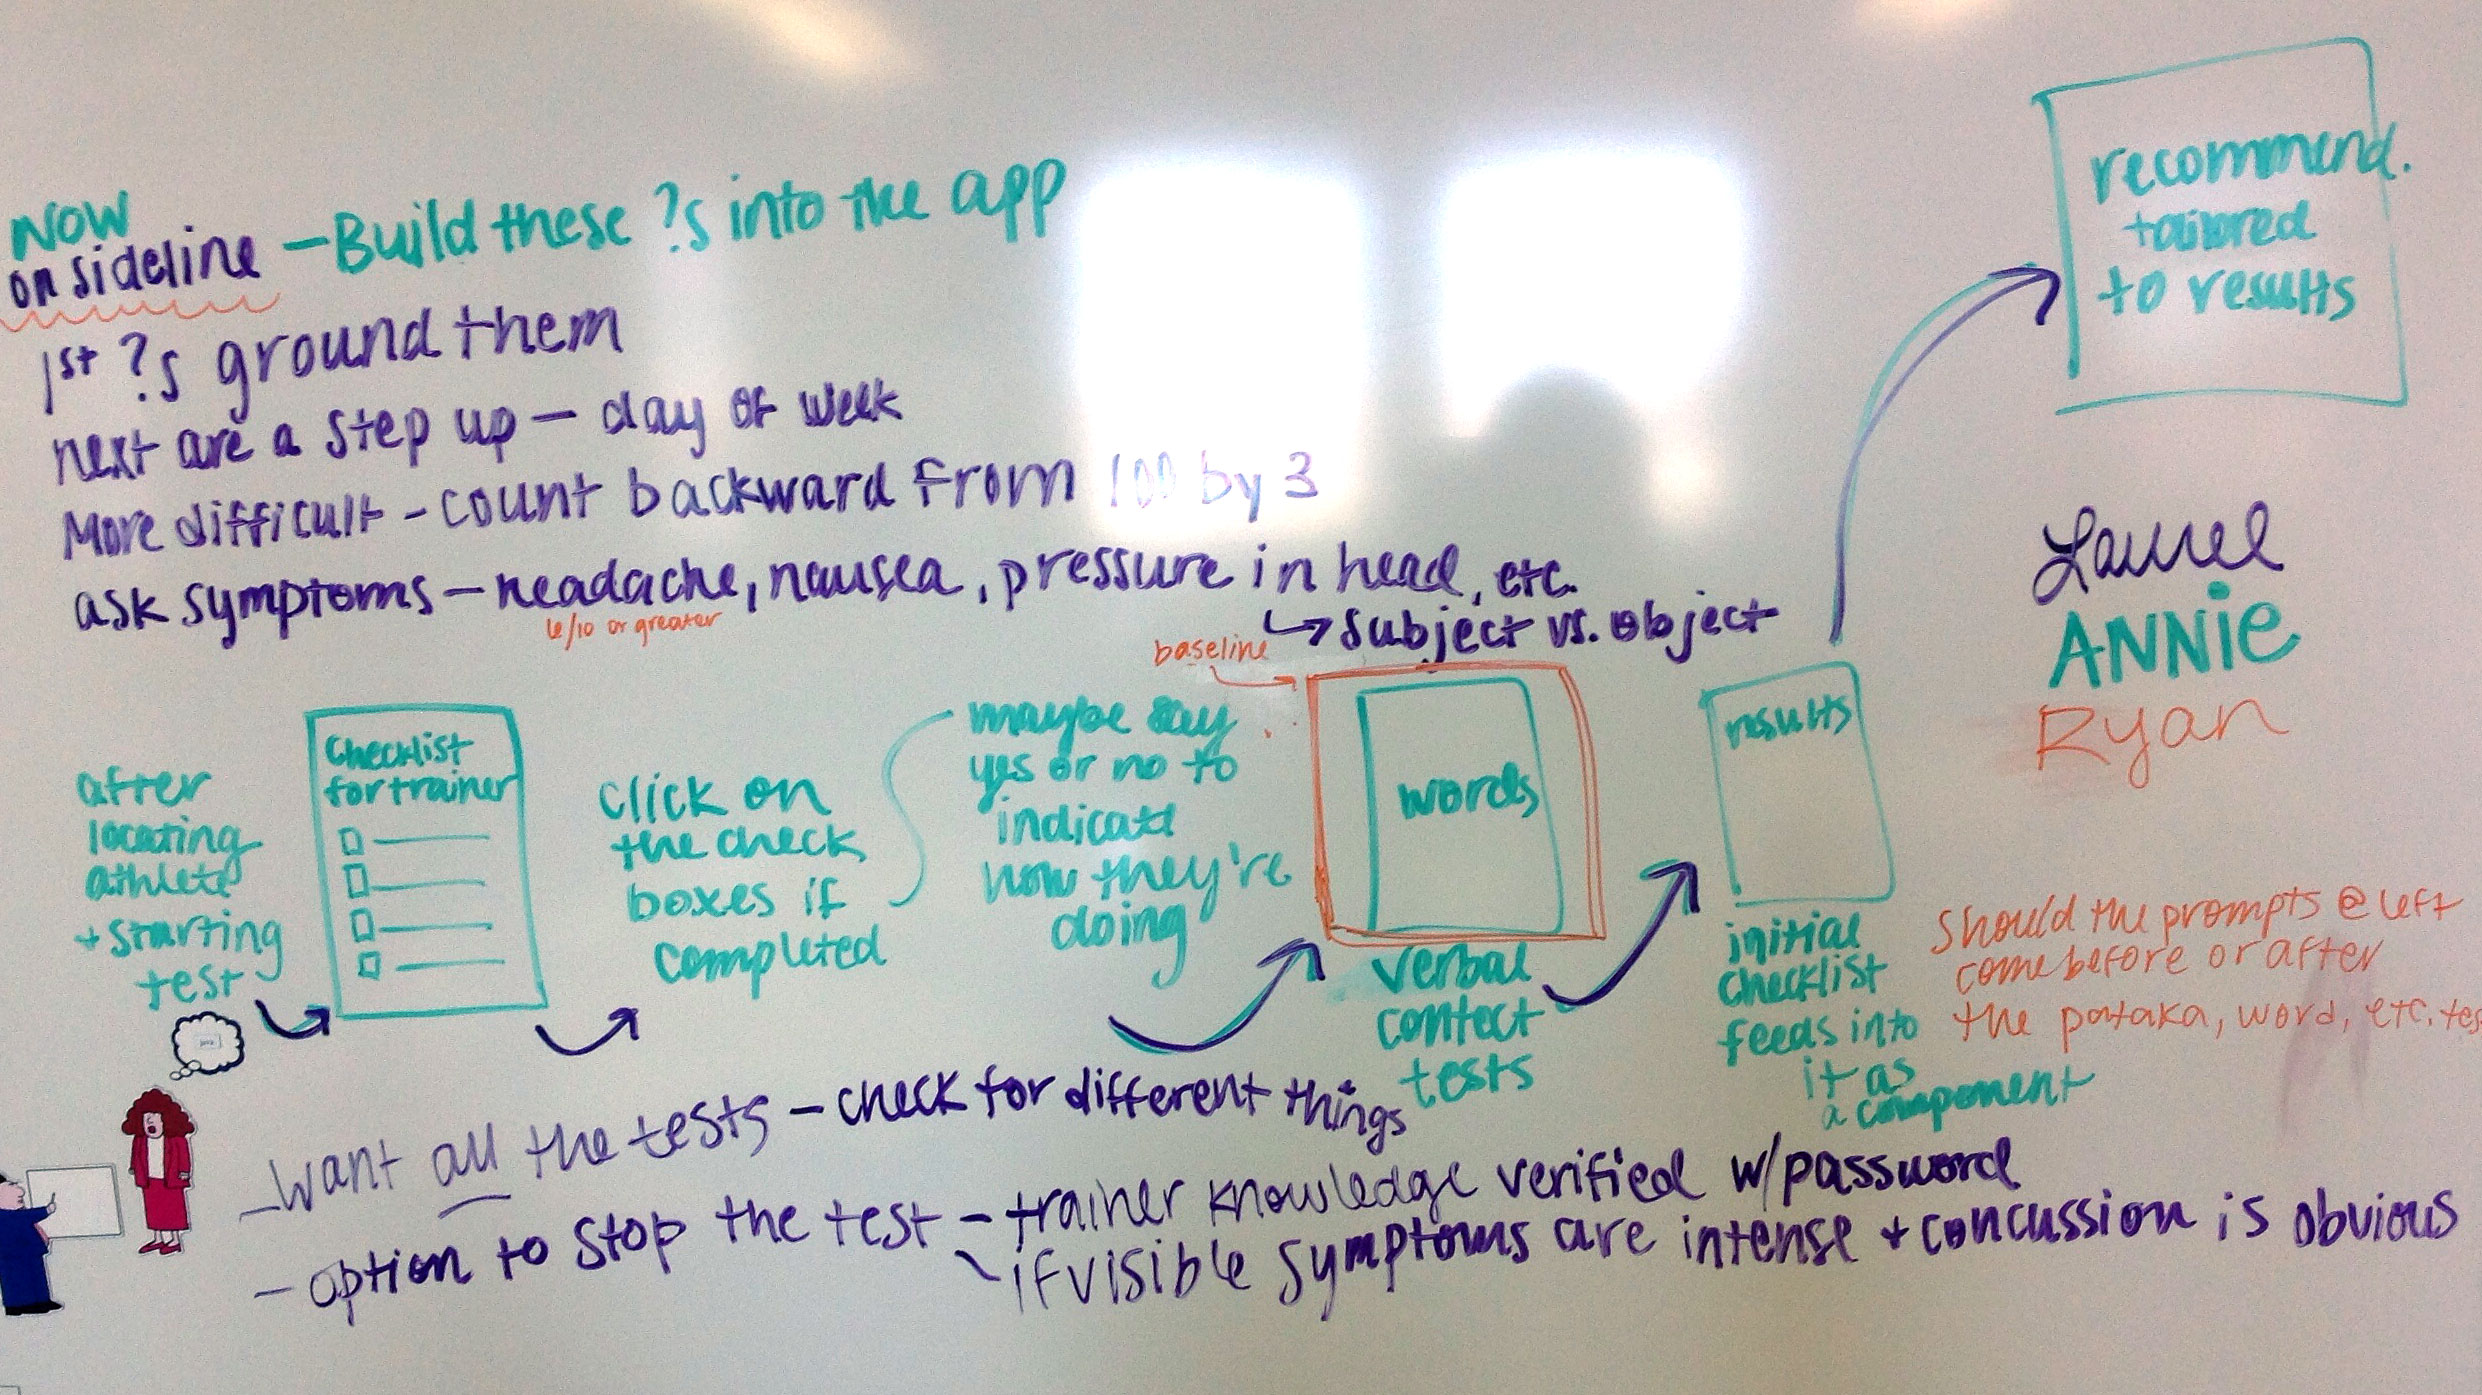 NOW
on sideline – Build these ?s into the app
1st ?s ground them
next are a step up – day of week
More difficult - count backward from 100 by 3
ask symptoms – headache, nausea, pressure in head, etc.
6/10 or greater
↳ subject vs. object
baseline
after
locating
athlete
+ starting
test
Checklist
for trainer
click on
the check
boxes if
completed
maybe say
yes or no to
indicate
how they're
doing
words
verbal
contect
tests
results
initial
checklist
feeds into
it as
a component
recommend.
tailored
to results
Laurel
ANNie
Ryan
Should the prompts @ left
come before or after
the pataka, word, etc. tes
– Want all the tests – check for different things
– option to stop the test – trainer knowledge verified w/password
if visible symptoms are intense + concussion is obvious